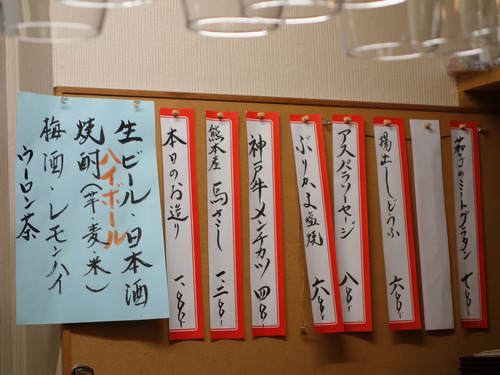 茄子のミートグラタン 七〇〇-
揚出しどうふ 六〇〇-
アスパラソーセージ 八〇〇-
ぶりかま塩焼 六〇〇-
神戸牛メンチカツ 四〇〇-
熊本産 馬さし
本日のお造り
生ビール・日本酒
ハイボール
焼酎(芋・麦・米)
梅酒・レモンハイ
ウーロン茶